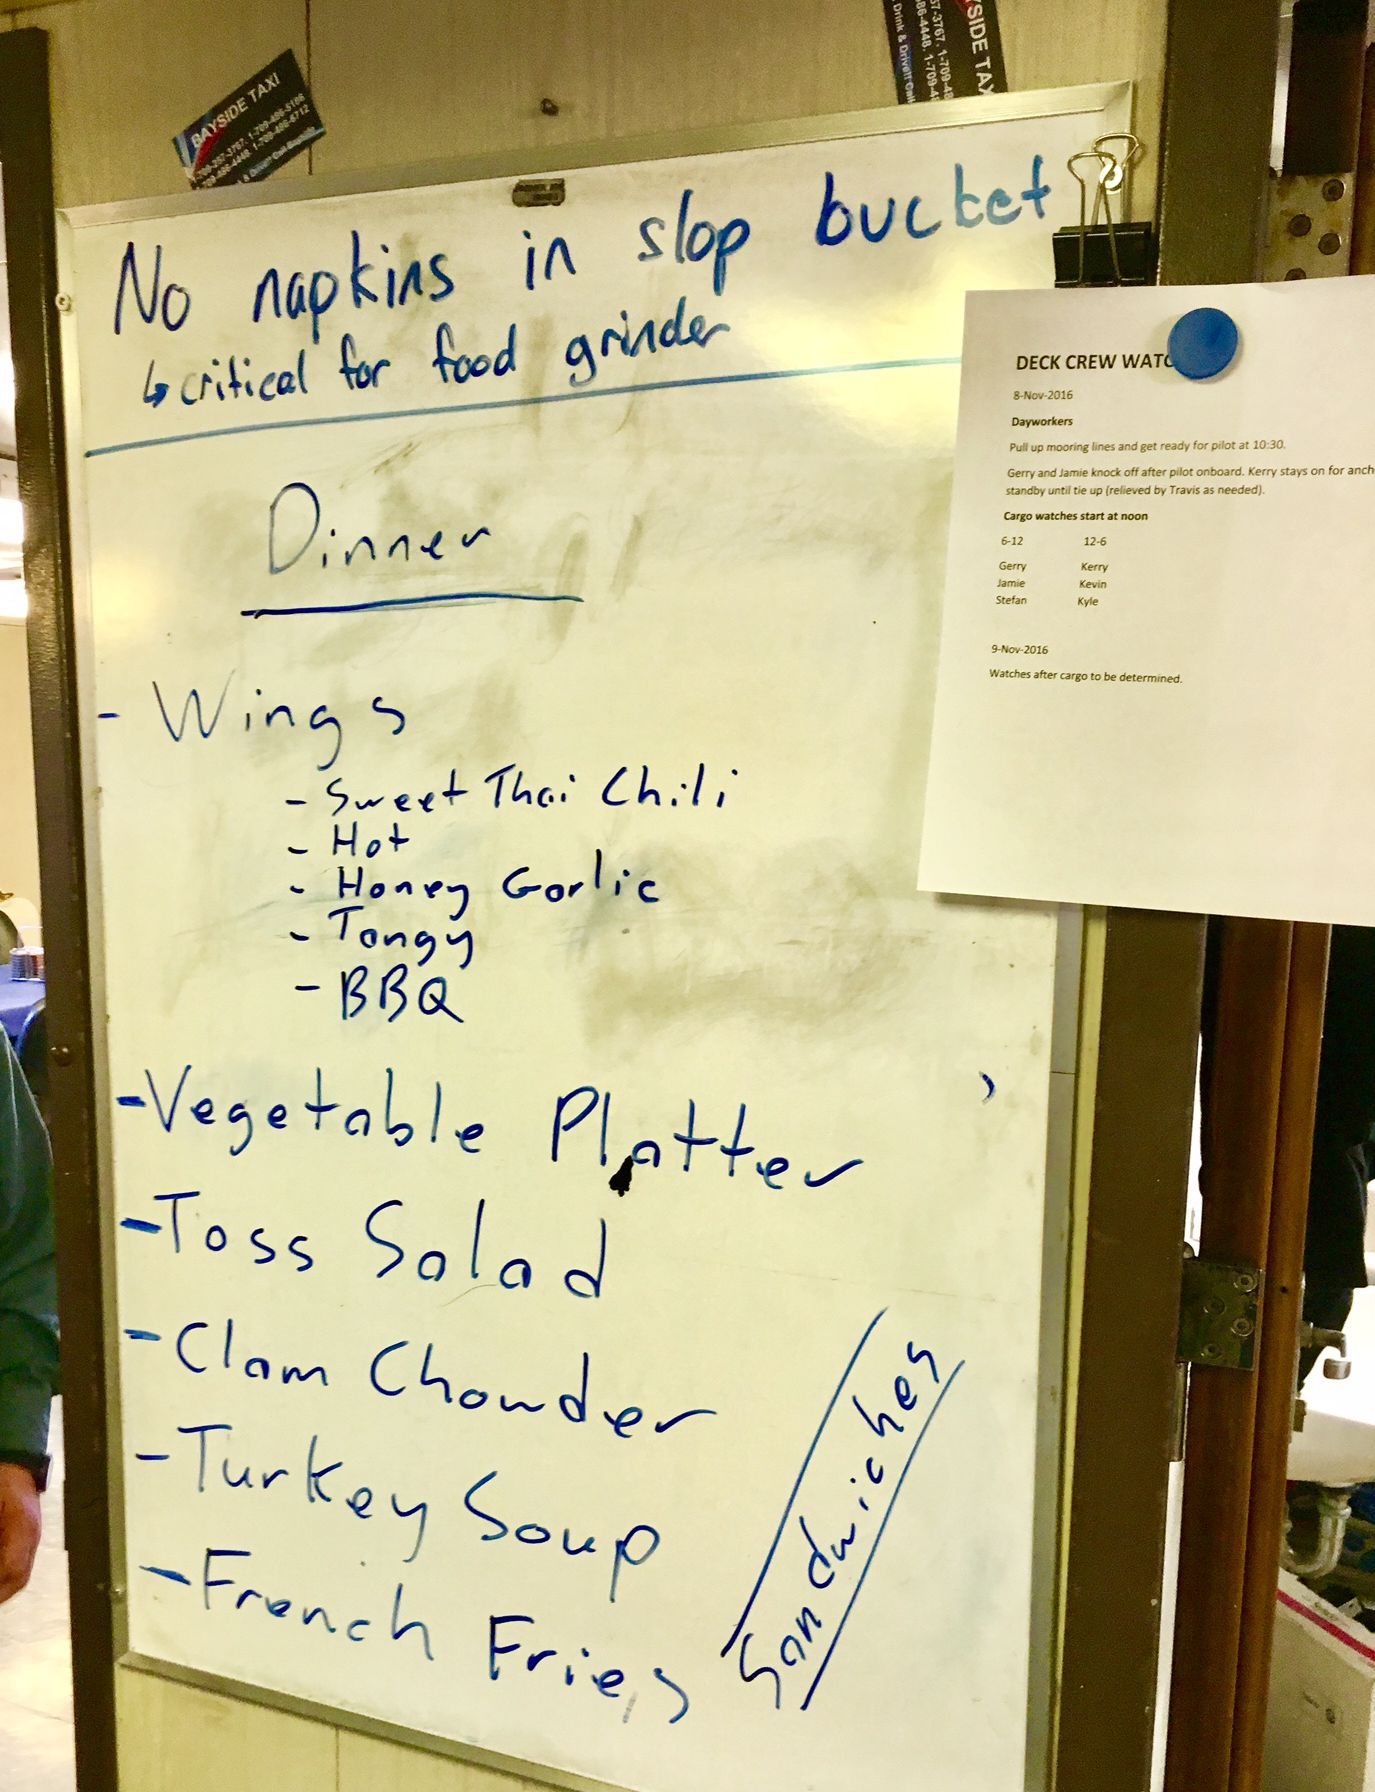 BAYSIDE TAXI
YSIDE TAX
No napkins in slop bucket
↳ critical for food grinder
Dinner
- Wings
- Sweet Thai Chili
- Hot
- Honey Garlic
- Tangy
- BBQ
- Vegetable Platter
- Toss Salad
- Clam Chowder
- Turkey Soup
- French Fries
Sandwiches
DECK CREW WATC
8-Nov-2016
Dayworkers
Pull up mooring lines and get ready for pilot at 10:30.
Gerry and Jamie knock off after pilot onboard. Kerry stays on for anch
standby until tie up (relieved by Travis as needed).
Cargo watches start at noon
6-12 12-6
Gerry Kerry
Jamie Kevin
Stefan Kyle
9-Nov-2016
Watches after cargo to be determined.